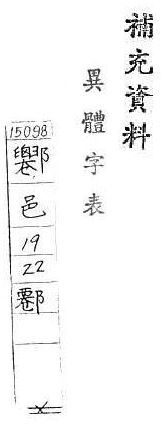 補充資料
異體字表
15098
邑
19
22